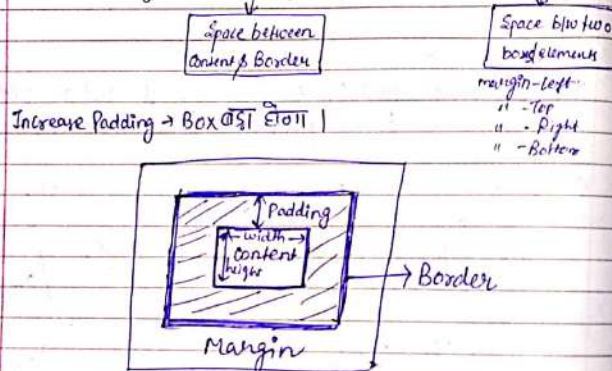 Space between
Content & Border
Space b/w two
box/elements
margin-Left
" -Top
" -Right
" -Bottom
Increase Padding → Box बड़ा होगा |
Padding
width
Content
height
Border
Margin